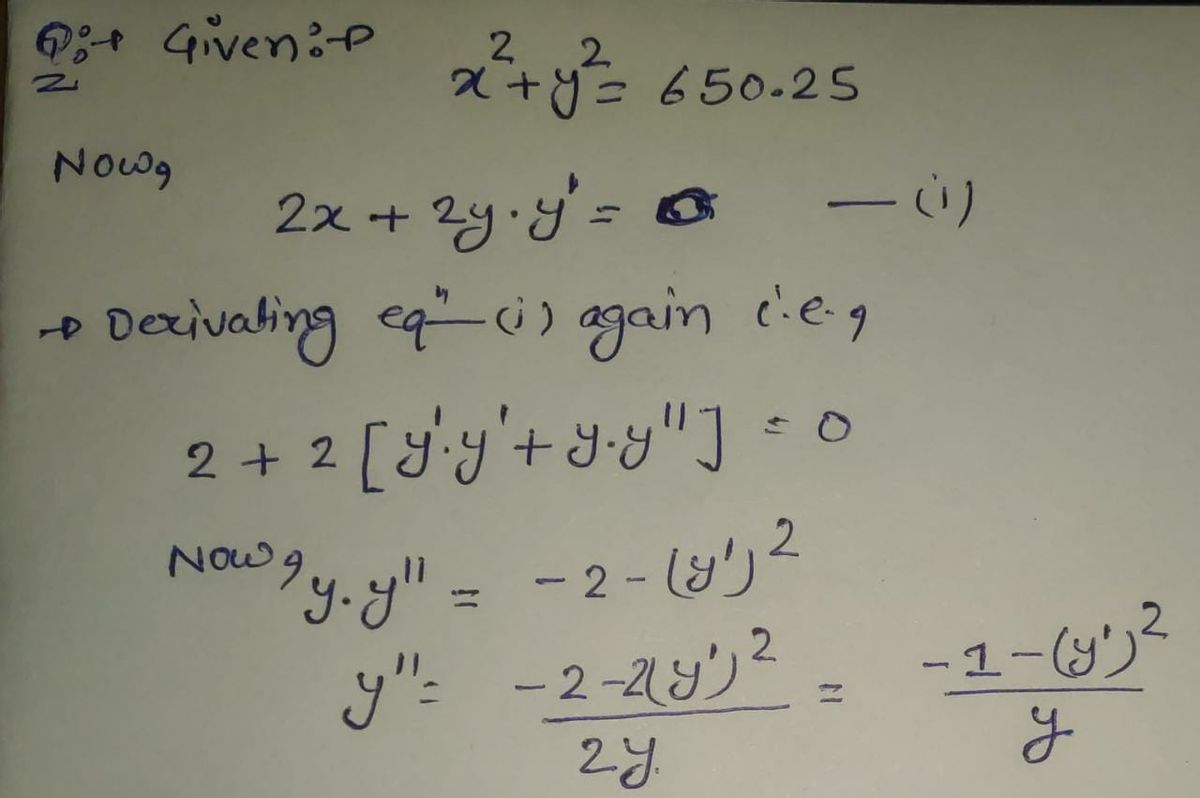 Q:→ Given:→ x²+y²= 650.25
Now,
2x + 2y·y' = 0 — (i)
→ Derivating eqⁿ (i) again i.e.,
2 + 2 [y'.y' + y.y''] = 0
Now, y.y'' = -2-(y')²
y''= (-2-2(y')²)/(2y.) = (-1-(y')²)/y